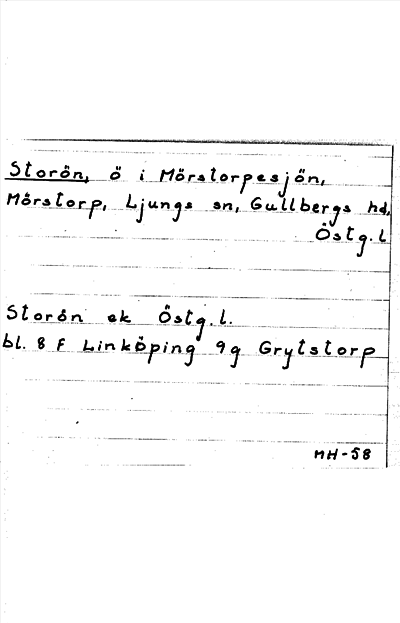 Storön, ö i Mörstorpesjön,
Mörstorp, Ljungs sn, Gullbergs hd,
Östg.l
Storön ek Östg.l.
bl. 8 F Linköping 9g Grytstorp
MH-58